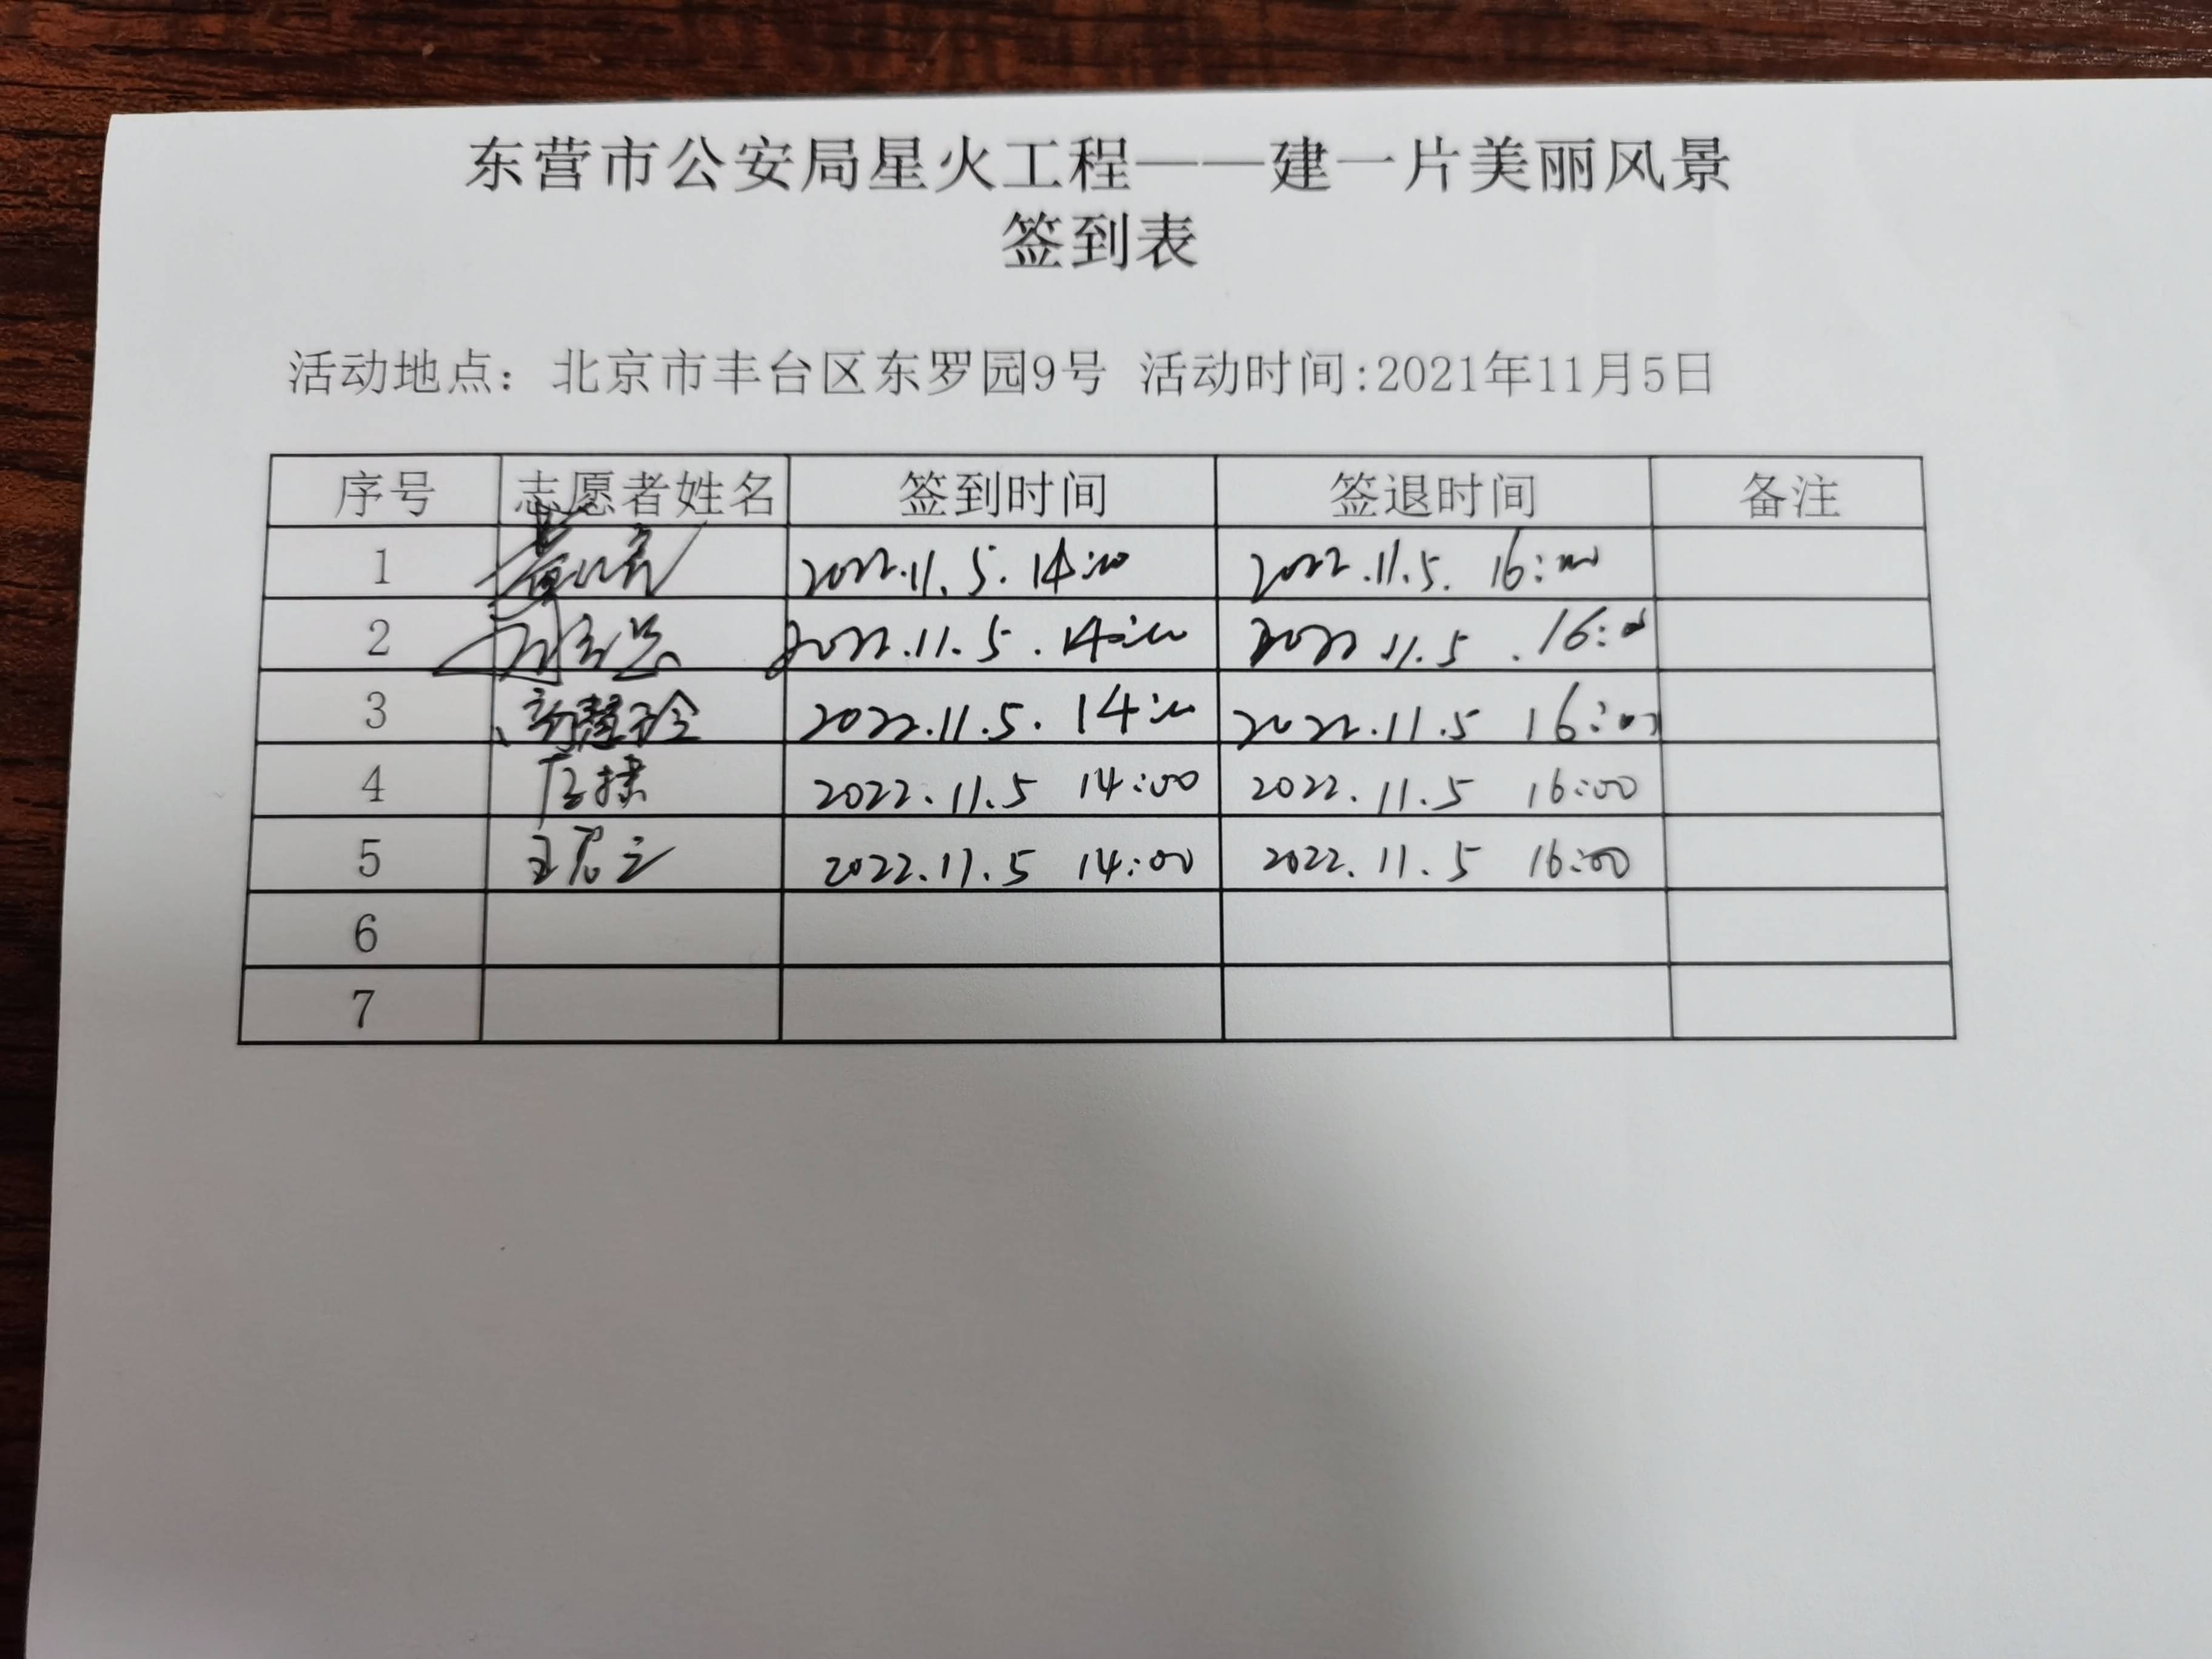 东营市公安局星火工程——建一片美丽风景
签到表
活动地点：北京市丰台区东罗园9号 活动时间:2021年11月5日
序号 志愿者姓名 签到时间 签退时间 备注
1 2022.11.5.14:00 2022.11.5. 16:00
2 2022.11.5.14:00 2022.11.5.16:00
3 2022.11.5.14:00 2022.11.5 16:00
4 2022.11.5 14:00 2022.11.5 16:00
5 王君立 2022.11.5 14:00 2022.11.5 16:00
6
7